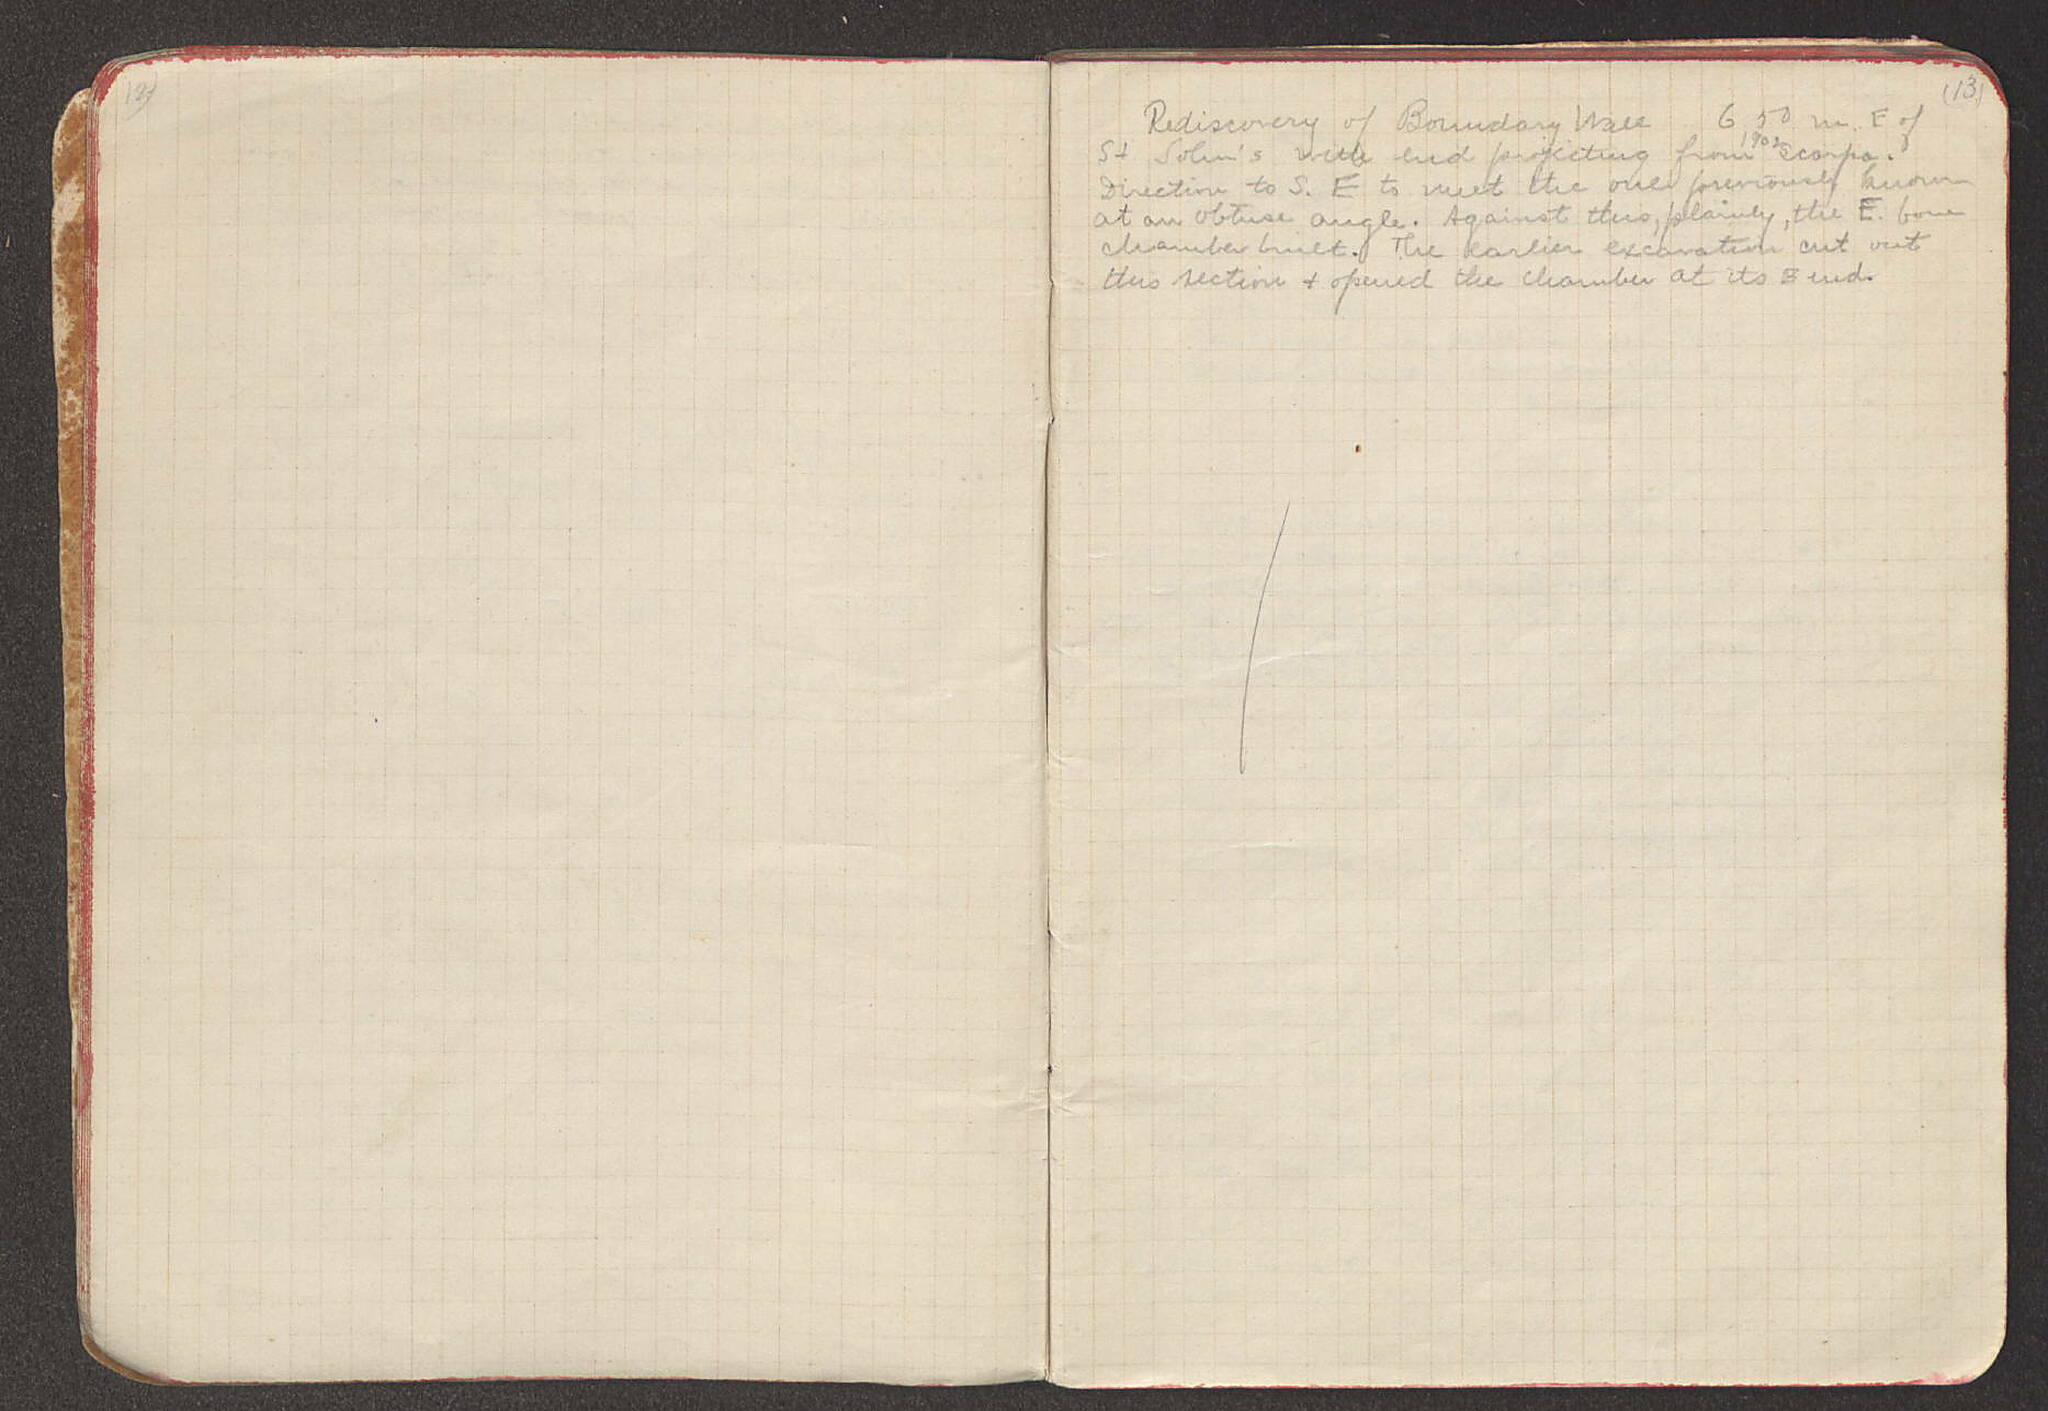 12)
(13)
Rediscovery of Boundary Wall 6 50 m. E of
St John's with end projecting from 1902 scarpa.
Direction to S. E to meet the one previously known
at an obtuse angle. Against this, plainly, the E. bone
chamber built. The earlier excavation cut out
this section + opened the chamber at its E end.